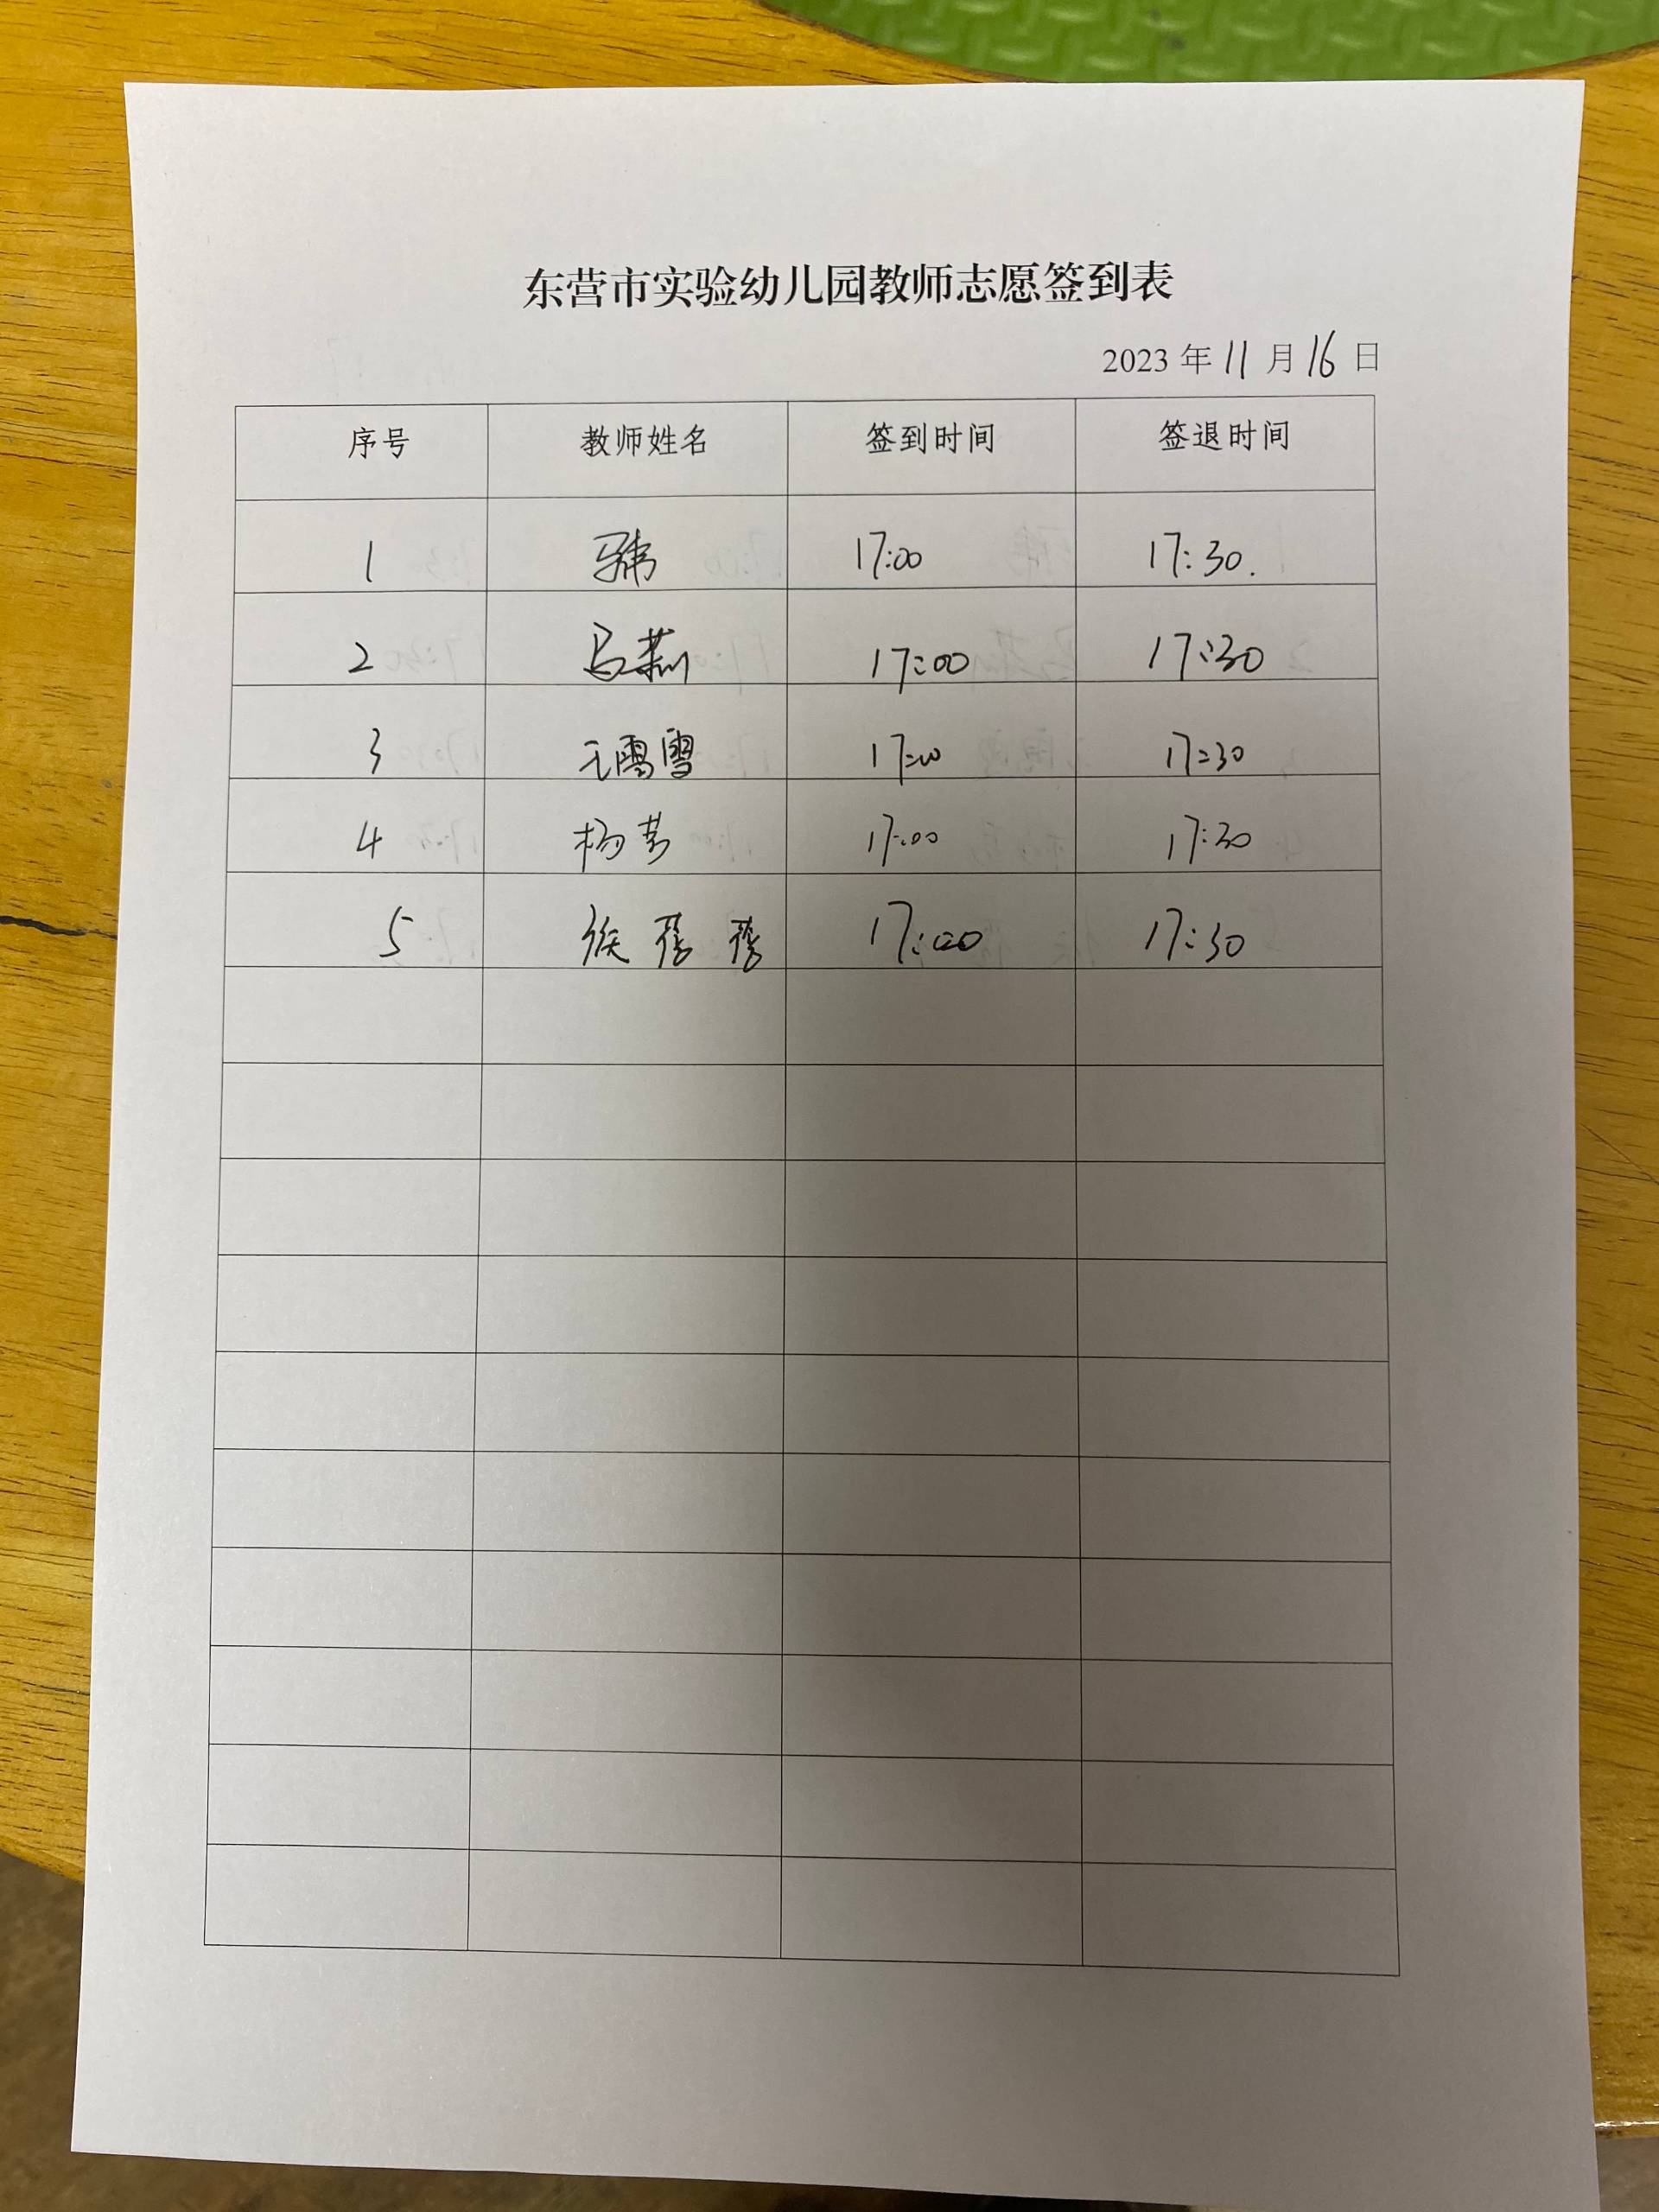 东营市实验幼儿园教师志愿签到表
2023 年 11 月 16 日
序号 教师姓名 签到时间 签退时间
1 17:00 17:30.
2 马燕 17:00 17:30
3 王雪雪 17:00 17:30
4 杨芳 17:00 17:30
5 侯蓓蓓 17:00 17:30